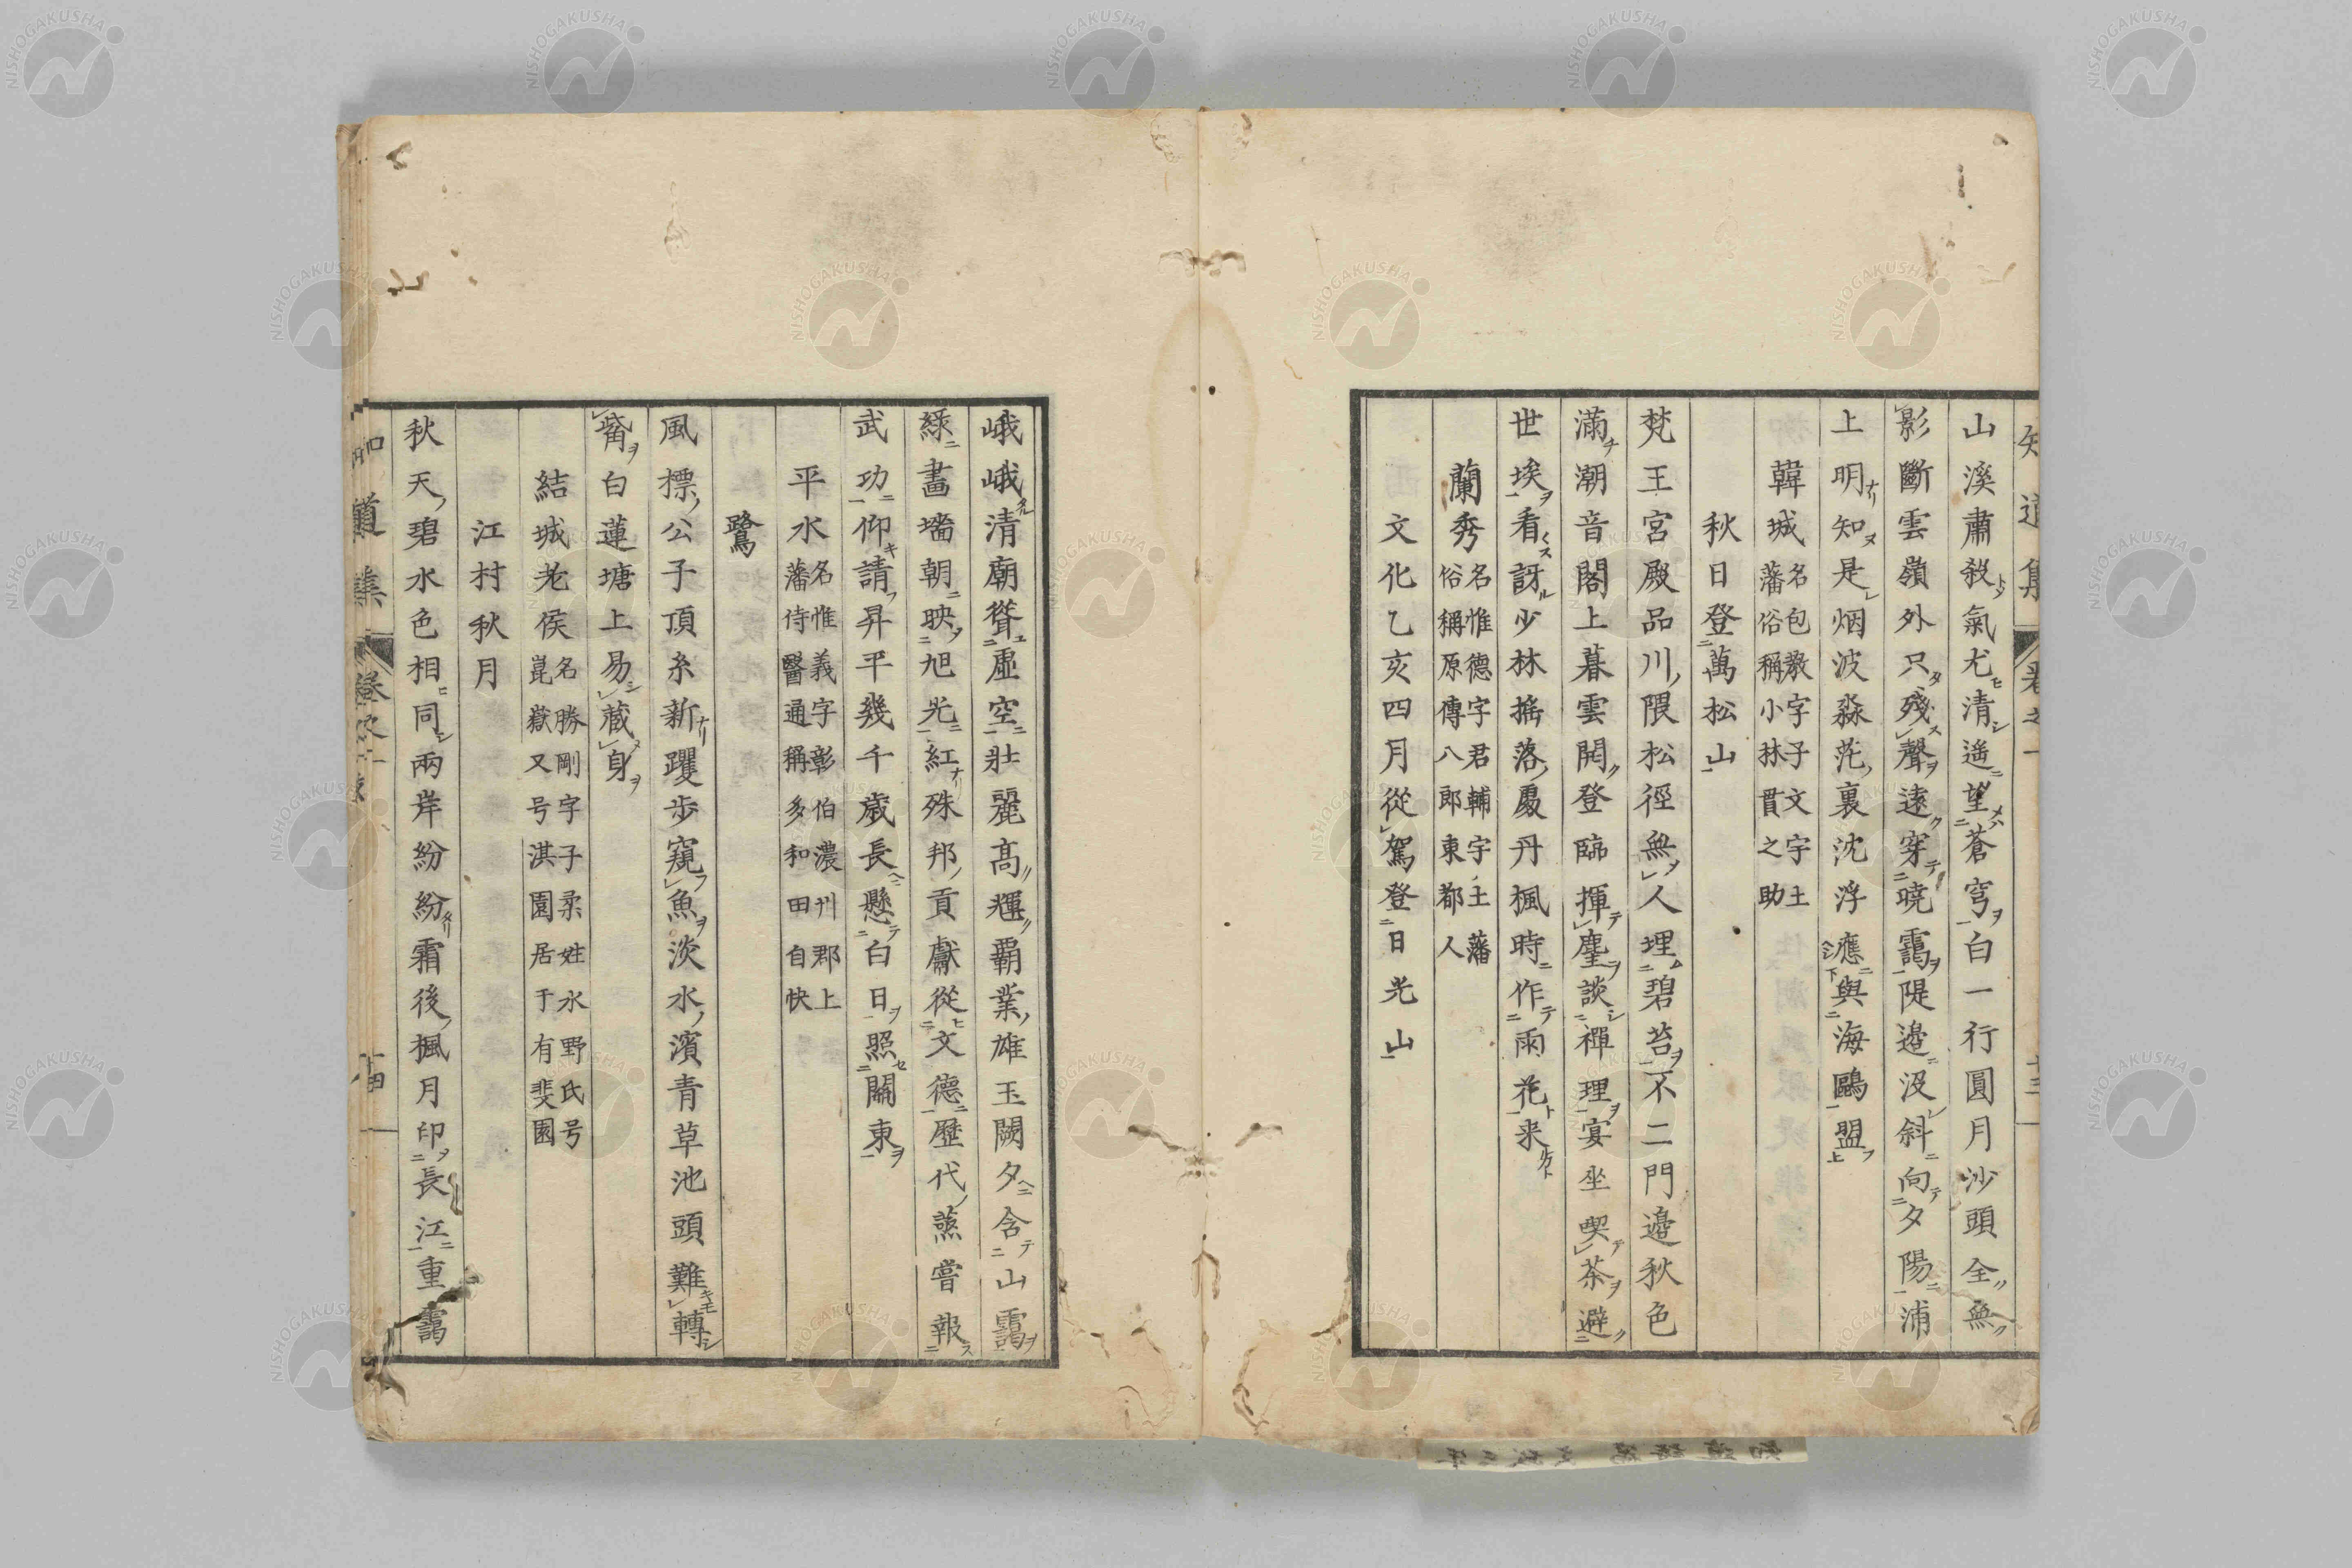 山溪肅殺氣尤清遥望蒼穹白一行圓月沙頭全無
影斷雲嶺外只殘聲遠穿曉靄隄邉没斜向夕陽浦
上明知是烟波淼茫裏沈浮應與海鷗盟
韓城名包教字子文字士藩俗稱小林貫之助
秋日登萬松山
梵王宮殿品川隈松徑無人埋碧苔不二門邉秋色
滿潮音閣上暮雲開登臨揮麈談禪理宴坐喫茶避
世埃看訝少林搖落處丹楓時作雨花来
蘭秀名惟德字君輔宇土藩俗稱原傳八郎東都人
文化乙亥四月從駕登日光山
峨峨清廟聳虛空壯麗高輝覇業雄玉闕夕含山靄
綠畵墻朝映旭光紅殊邦貢獻從文德歷代蒸嘗報
武功仰請昇平幾千歲長懸白日照關東
平水名惟義字彰伯濃州郡上藩侍醫通稱多和田自快
鷺
風標公子頂糸新躍步窺魚淡水濱青草池頭難轉
觜白蓮塘上易藏身
結城老侯名勝剛字子柔姓水野氏号崑嶽又号淇園居于有斐園
江村秋月
秋天碧水色相同兩岸紛紛霜後楓月印長江重靄
知道集
NISHOGAKUSHA